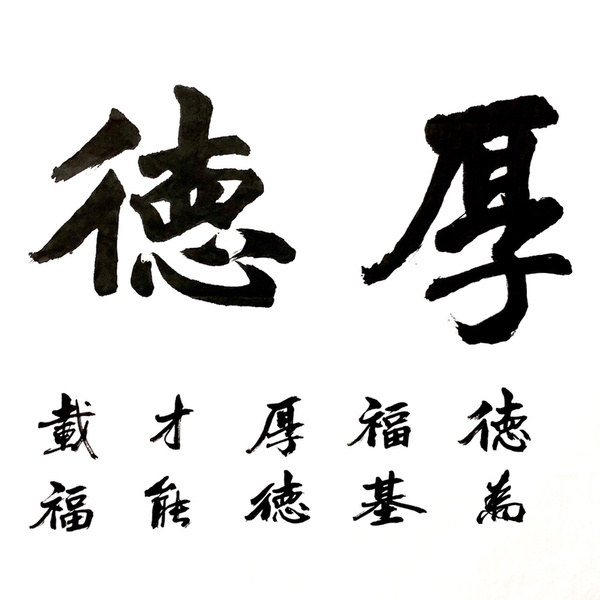 厚德
德為
福基
厚德
才能
載福